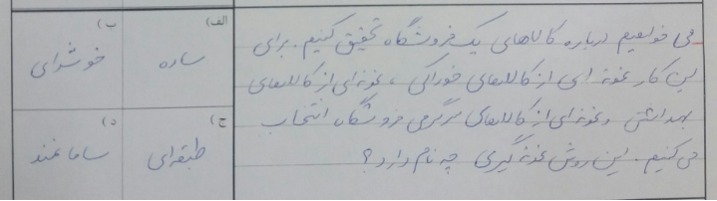 می خواهیم درباره کالاهای یک فروشگاه تحقیق کنیم. برای
این کار نمونه ای از کالاهای خوراکی ، نمونه ای از کالاهای
بهداشتی و نمونه ای از کالاهای سرگرمی فروشگاه انتخاب
می کنیم. این روش نمونه گیری چه نام دارد؟
الف) ساده
ب) خوشه ای
ج) طبقه ای
د) سامانمند